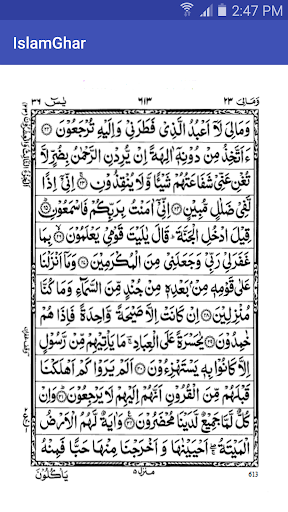 2:47 PM
IslamGhar
وَمَالِيَ ٢٣
٦١٣
يٰسٓ ٣٦
وَمَالِيَ لَآ اَعْبُدُ الَّذِيْ فَطَرَنِيْ وَاِلَيْهِ تُرْجَعُوْنَ ﴿٢٢﴾
ءَاَتَّخِذُ مِنْ دُوْنِهٖٓ اٰلِهَةً اِنْ يُّرِدْنِ الرَّحْمٰنُ بِضُرٍّ لَّا
تُغْنِ عَنِّيْ شَفَاعَتُهُمْ شَيْـًٔا وَّلَا يُنْقِذُوْنِ ﴿٢٣﴾ اِنِّيْٓ اِذًا
لَّفِيْ ضَلٰلٍ مُّبِيْنٍ ﴿٢٤﴾ اِنِّيْٓ اٰمَنْتُ بِرَبِّكُمْ فَاسْمَعُوْنِ ﴿٢٥﴾
قِيْلَ ادْخُلِ الْجَنَّةَ ؕ قَالَ يٰلَيْتَ قَوْمِيْ يَعْلَمُوْنَ ﴿٢٦﴾ بِمَا
غَفَرَلِيْ رَبِّيْ وَجَعَلَنِيْ مِنَ الْمُكْرَمِيْنَ ﴿٢٧﴾ وَمَآ اَنْزَلْنَا
عَلٰى قَوْمِهٖ مِنْۢ بَعْدِهٖ مِنْ جُنْدٍ مِّنَ السَّمَآءِ وَمَا كُنَّا
مُنْزِلِيْنَ ﴿٢٨﴾ اِنْ كَانَتْ اِلَّا صَيْحَةً وَّاحِدَةً فَاِذَا هُمْ
خٰمِدُوْنَ ﴿٢٩﴾ يٰحَسْرَةً عَلَى الْعِبَادِ ؔۚ مَا يَاْتِيْهِمْ مِّنْ رَّسُوْلٍ
اِلَّا كَانُوْا بِهٖ يَسْتَهْزِءُوْنَ ﴿٣٠﴾ اَلَمْ يَرَوْا كَمْ اَهْلَكْنَا
قَبْلَهُمْ مِّنَ الْقُرُوْنِ اَنَّهُمْ اِلَيْهِمْ لَا يَرْجِعُوْنَ ﴿٣١﴾ وَاِنْ
كُلٌّ لَّمَّا جَمِيْعٌ لَّدَيْنَا مُحْضَرُوْنَ ﴿٣٢﴾ وَاٰيَةٌ لَّهُمُ الْاَرْضُ
الْمَيْتَةُ ۖۚ اَحْيَيْنٰهَا وَاَخْرَجْنَا مِنْهَا حَبًّا فَمِنْهُ
يَاْكُلُوْنَ
منزل ٥
613